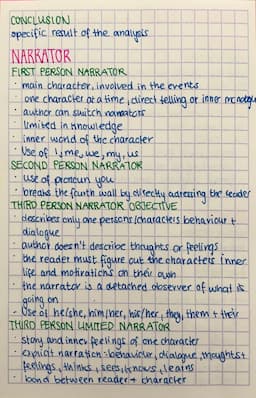 CONCLUSION
specific result of the analysis
NARRATOR
FIRST PERSON NARRATOR
· main character, involved in the events
· one character at a time, direct telling or inner monologue
· author can switch narrators
· limited in knowledge
· inner world of the character
· Use of I, me, we, my, us
SECOND PERSON NARRATOR
· use of pronoun you
· breaks the fourth wall by directly adressing the reader
THIRD PERSON NARRATOR OBJECTIVE
· describes only one persons/characters behaviour +
dialogue
· author doesn't describe thoughts or feelings
· the reader must figure out the characters inner
life and motivations on their own
· the narrator is a detached observer of what is
going on
· Use of he/she, him/her, his/her, they, them + their
THIRD PERSON LIMITED NARRATOR
· story and inner feelings of one character
· explicit narration: behaviour, dialogue, thoughts +
feelings, thinks, sees, knows, learns
· bond between reader + character